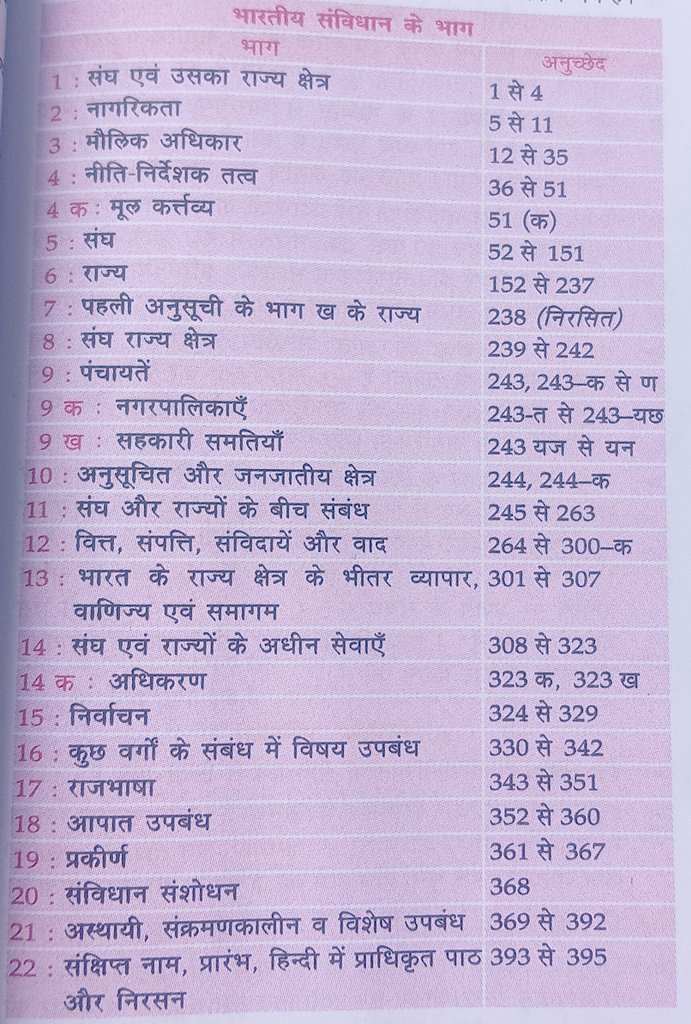 भारतीय संविधान के भाग
भाग अनुच्छेद
1 : संघ एवं उसका राज्य क्षेत्र 1 से 4
2 : नागरिकता 5 से 11
3 : मौलिक अधिकार 12 से 35
4 : नीति-निर्देशक तत्व 36 से 51
4 क : मूल कर्त्तव्य 51 (क)
5 : संघ 52 से 151
6 : राज्य 152 से 237
7 : पहली अनुसूची के भाग ख के राज्य 238 (निरसित)
8 : संघ राज्य क्षेत्र 239 से 242
9 : पंचायतें 243, 243–क से ण
9 क : नगरपालिकाएँ 243-त से 243–यछ
9 ख : सहकारी समतियाँ 243 यज से यन
10 : अनुसूचित और जनजातीय क्षेत्र 244, 244–क
11 : संघ और राज्यों के बीच संबंध 245 से 263
12 : वित्त, संपत्ति, संविदायें और वाद 264 से 300–क
13 : भारत के राज्य क्षेत्र के भीतर व्यापार, 301 से 307
वाणिज्य एवं समागम
14 : संघ एवं राज्यों के अधीन सेवाएँ 308 से 323
14 क : अधिकरण 323 क, 323 ख
15 : निर्वाचन 324 से 329
16 : कुछ वर्गों के संबंध में विषय उपबंध 330 से 342
17 : राजभाषा 343 से 351
18 : आपात उपबंध 352 से 360
19 : प्रकीर्ण 361 से 367
20 : संविधान संशोधन 368
21 : अस्थायी, संक्रमणकालीन व विशेष उपबंध 369 से 392
22 : संक्षिप्त नाम, प्रारंभ, हिन्दी में प्राधिकृत पाठ 393 से 395
और निरसन